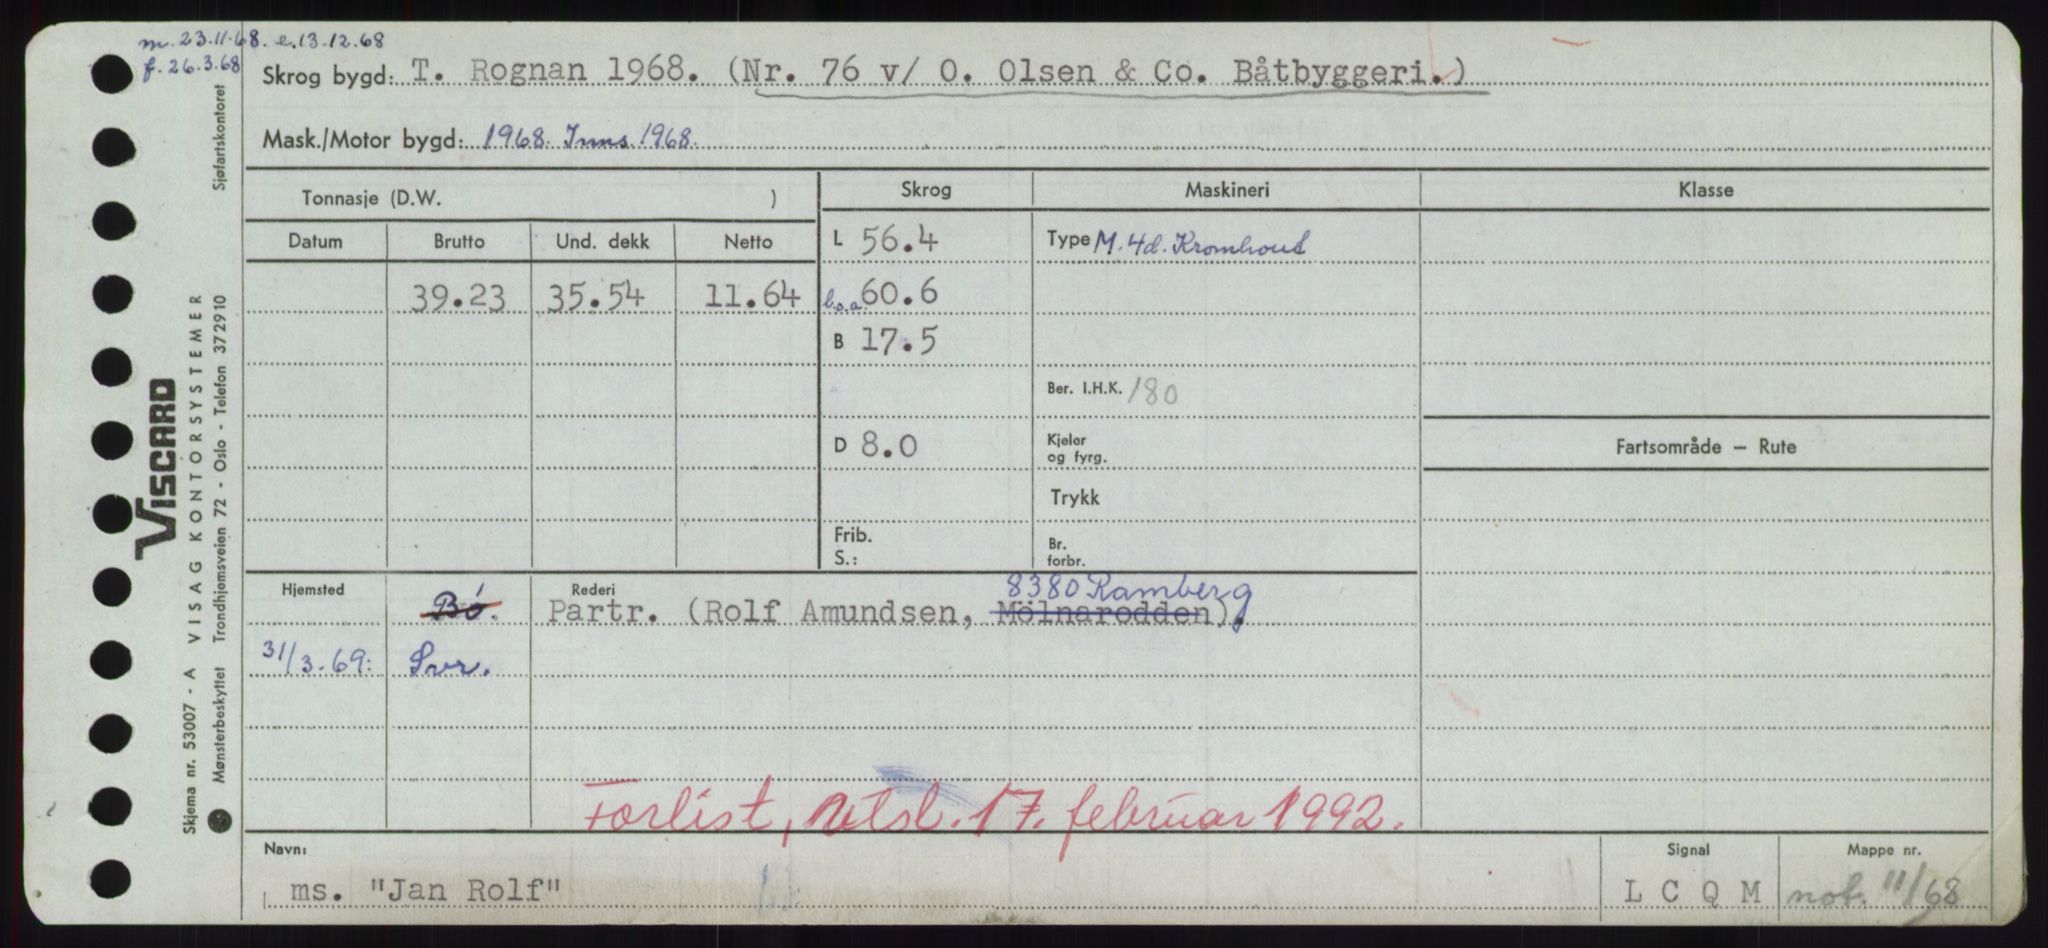 m. 23.11.68. e. 13.12.68
f. 26.3.68
Skrog bygd: T. Rognan 1968. (Nr. 76 v/ O. Olsen & Co. Båtbyggeri.)
Mask./Motor bygd: 1968. Inns. 1968.
Tonnasje (D.W. )
Skrog Maskineri Klasse
Datum Brutto Und. dekk Netto
L 56.4 Type M. 4d. Kromhout
39.23 35.54 11.64 l.o.a. 60.6
B 17.5
Ber. I.H.K. 180
D 8.0 Kjeler og fyrg.
Fartsområde – Rute
Trykk
Frib. S.: Br. forbr.
Hjemsted Rederi
8380 Ramberg
Bö. Partr. (Rolf Amundsen, Mölnarodden).
31/3-69: Svr.
Forlist, utsl. 17. februar 1992.
Navn: Signal Mappe nr.
ms. "Jan Rolf" L C Q M not. 11/68
VISCARD
Skjema nr. 53007 - A VISAG KONTORSYSTEMER
Mønsterbeskyttet Trondhjemsveien 72 - Oslo - Telefon 372910 Sjøfartskontoret